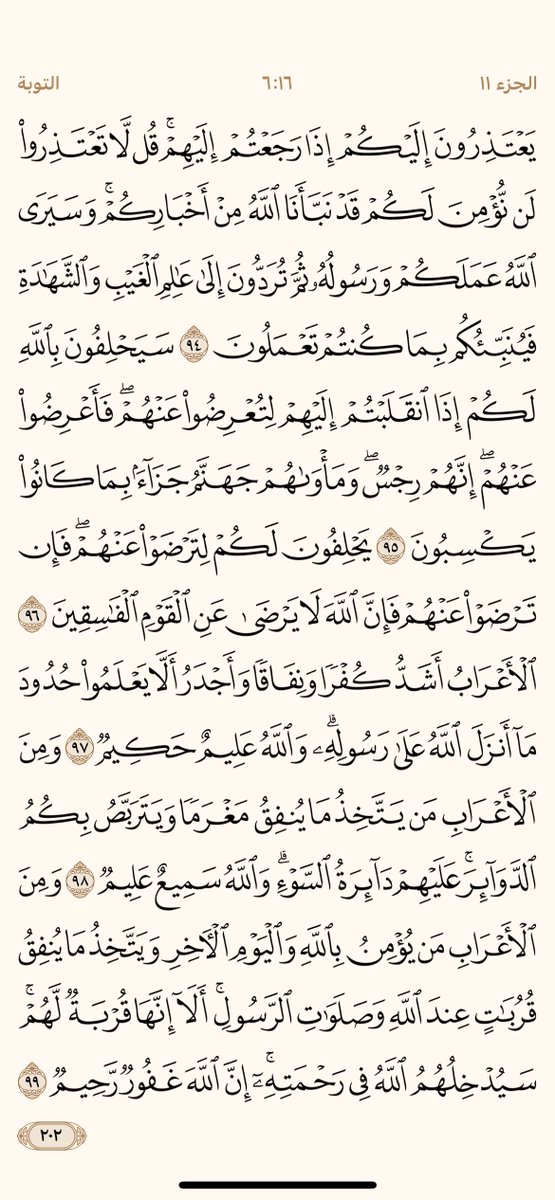 الجزء ١١ ٦:١٦ التوبة
يَعْتَذِرُونَ إِلَيْكُمْ إِذَا رَجَعْتُمْ إِلَيْهِمْ ۚ قُل لَّا تَعْتَذِرُوا۟
لَن نُّؤْمِنَ لَكُمْ قَدْ نَبَّأَنَا ٱللَّهُ مِنْ أَخْبَارِكُمْ ۚ وَسَيَرَى
ٱللَّهُ عَمَلَكُمْ وَرَسُولُهُۥ ثُمَّ تُرَدُّونَ إِلَىٰ عَـٰلِمِ ٱلْغَيْبِ وَٱلشَّهَـٰدَةِ
فَيُنَبِّئُكُم بِمَا كُنتُمْ تَعْمَلُونَ ٩٤ سَيَحْلِفُونَ بِٱللَّهِ
لَكُمْ إِذَا ٱنقَلَبْتُمْ إِلَيْهِمْ لِتُعْرِضُوا۟ عَنْهُمْ ۖ فَأَعْرِضُوا۟
عَنْهُمْ ۖ إِنَّهُمْ رِجْسٌ ۖ وَمَأْوَىٰهُمْ جَهَنَّمُ جَزَآءًۢ بِمَا كَانُوا۟
يَكْسِبُونَ ٩٥ يَحْلِفُونَ لَكُمْ لِتَرْضَوْا۟ عَنْهُمْ ۖ فَإِن
تَرْضَوْا۟ عَنْهُمْ فَإِنَّ ٱللَّهَ لَا يَرْضَىٰ عَنِ ٱلْقَوْمِ ٱلْفَـٰسِقِينَ ٩٦
ٱلْأَعْرَابُ أَشَدُّ كُفْرًا وَنِفَاقًا وَأَجْدَرُ أَلَّا يَعْلَمُوا۟ حُدُودَ
مَآ أَنزَلَ ٱللَّهُ عَلَىٰ رَسُولِهِۦ ۗ وَٱللَّهُ عَلِيمٌ حَكِيمٌ ٩٧ وَمِنَ
ٱلْأَعْرَابِ مَن يَتَّخِذُ مَا يُنفِقُ مَغْرَمًا وَيَتَرَبَّصُ بِكُمُ
ٱلدَّوَآئِرَ ۚ عَلَيْهِمْ دَآئِرَةُ ٱلسَّوْءِ ۗ وَٱللَّهُ سَمِيعٌ عَلِيمٌ ٩٨ وَمِنَ
ٱلْأَعْرَابِ مَن يُؤْمِنُ بِٱللَّهِ وَٱلْيَوْمِ ٱلْـَٔاخِرِ وَيَتَّخِذُ مَا يُنفِقُ
قُرُبَـٰتٍ عِندَ ٱللَّهِ وَصَلَوَٰتِ ٱلرَّسُولِ ۚ أَلَآ إِنَّهَا قُرْبَةٌ لَّهُمْ ۚ
سَيُدْخِلُهُمُ ٱللَّهُ فِى رَحْمَتِهِۦٓ ۚ إِنَّ ٱللَّهَ غَفُورٌ رَّحِيمٌ ٩٩
٢٠٢